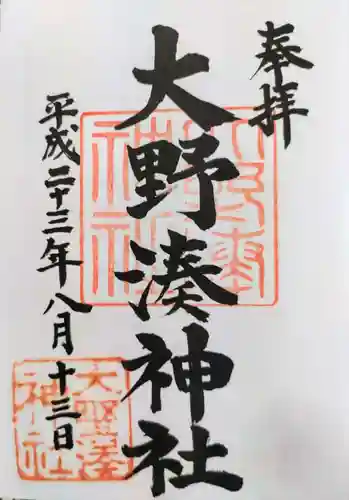 奉拝
大野湊神社
平成二十三年八月十三日
大野湊神社
大野湊神社